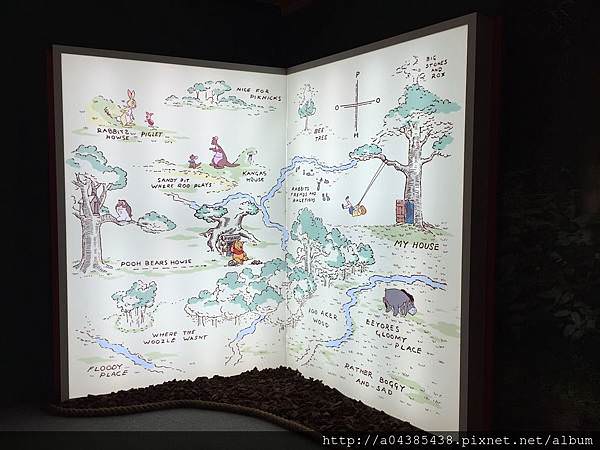 NICE FOR
PIKNICKS
RABBITS
HOWSE
PIGLET
SANDY PIT
WHERE ROO PLAYS
KANGAS
HOUSE
POOH BEARS HOWSE
WHERE THE
WOOZLE WASNT
FLOODY
PLACE
BIG
STONES
AND
ROX
P
O
O
H
BEE
TREE
RABBITS
FRENDS AND
RALETIONS
MY HOUSE
100 AKER
WOOD
EEYORES
GLOOMY
PLACE
RATHER BOGGY
AND SAD
http://a04385438.pixnet.net/album